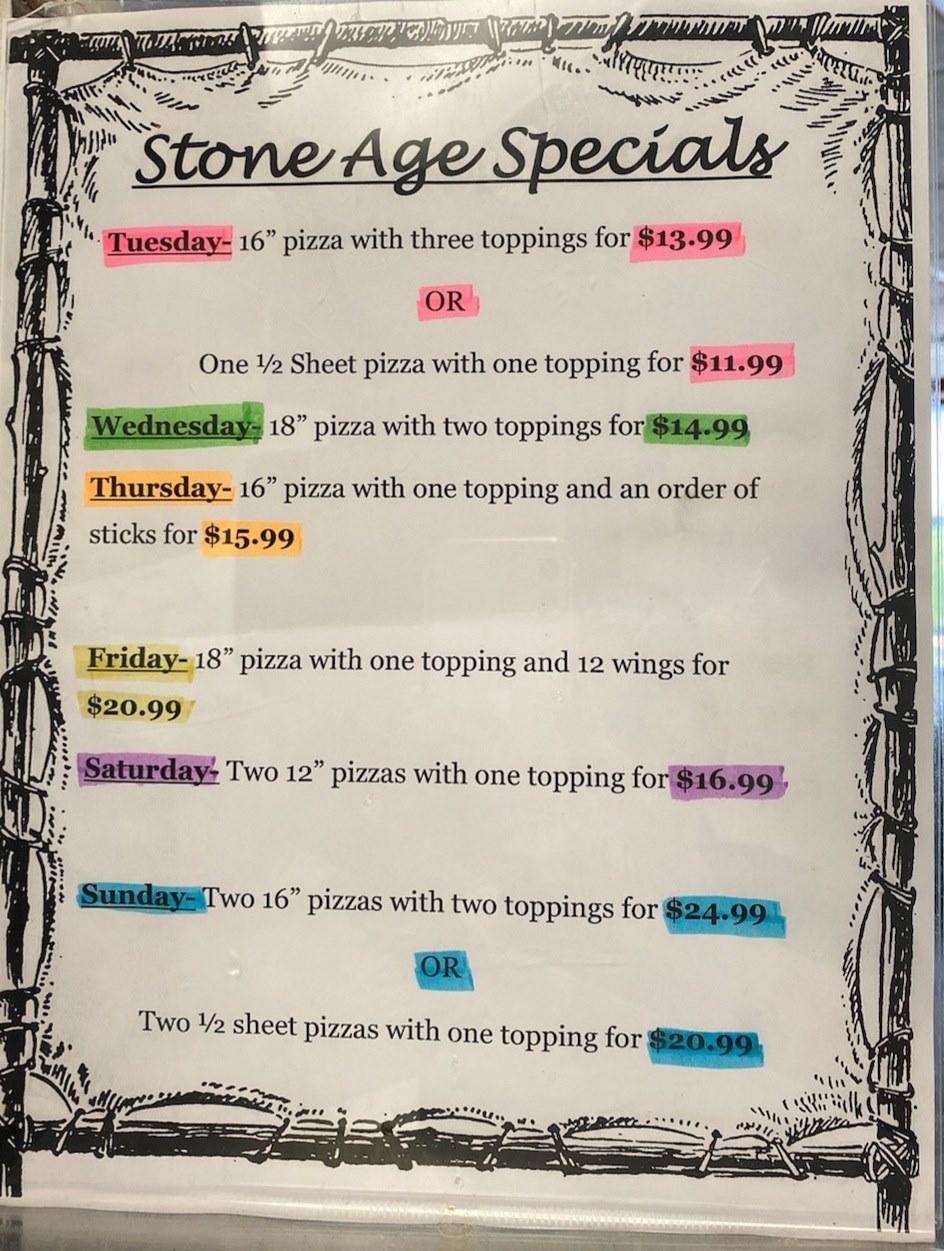 Stone Age Specials
Tuesday- 16” pizza with three toppings for $13.99
OR
One ½ Sheet pizza with one topping for $11.99
Wednesday- 18” pizza with two toppings for $14.99
Thursday- 16” pizza with one topping and an order of
sticks for $15.99
Friday- 18” pizza with one topping and 12 wings for
$20.99
Saturday- Two 12” pizzas with one topping for $16.99
Sunday- Two 16” pizzas with two toppings for $24.99
OR
Two ½ sheet pizzas with one topping for $20.99